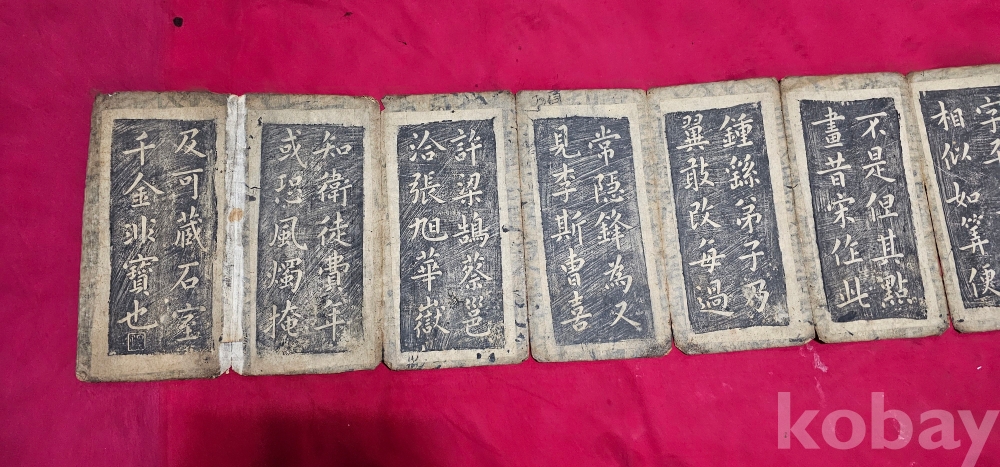 字
相似如筭便
不是但其點
畫昔宋作此
鍾繇弟子乃
翼敢改每過
常隱鋒為又
見李斯曹喜
許梁鵠蔡邕
洽張旭華嶽
知衛徒費年
或恐風燭掩
及可藏石室
千金非寶也
kobay